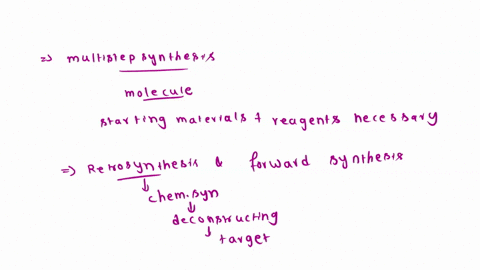 ⇒ multistep synthesis
molecule
starting materials + reagents necessary
⇒ Retrosynthesis & forward synthesis
↓
chem.syn
↓
deconstructing
↓
target